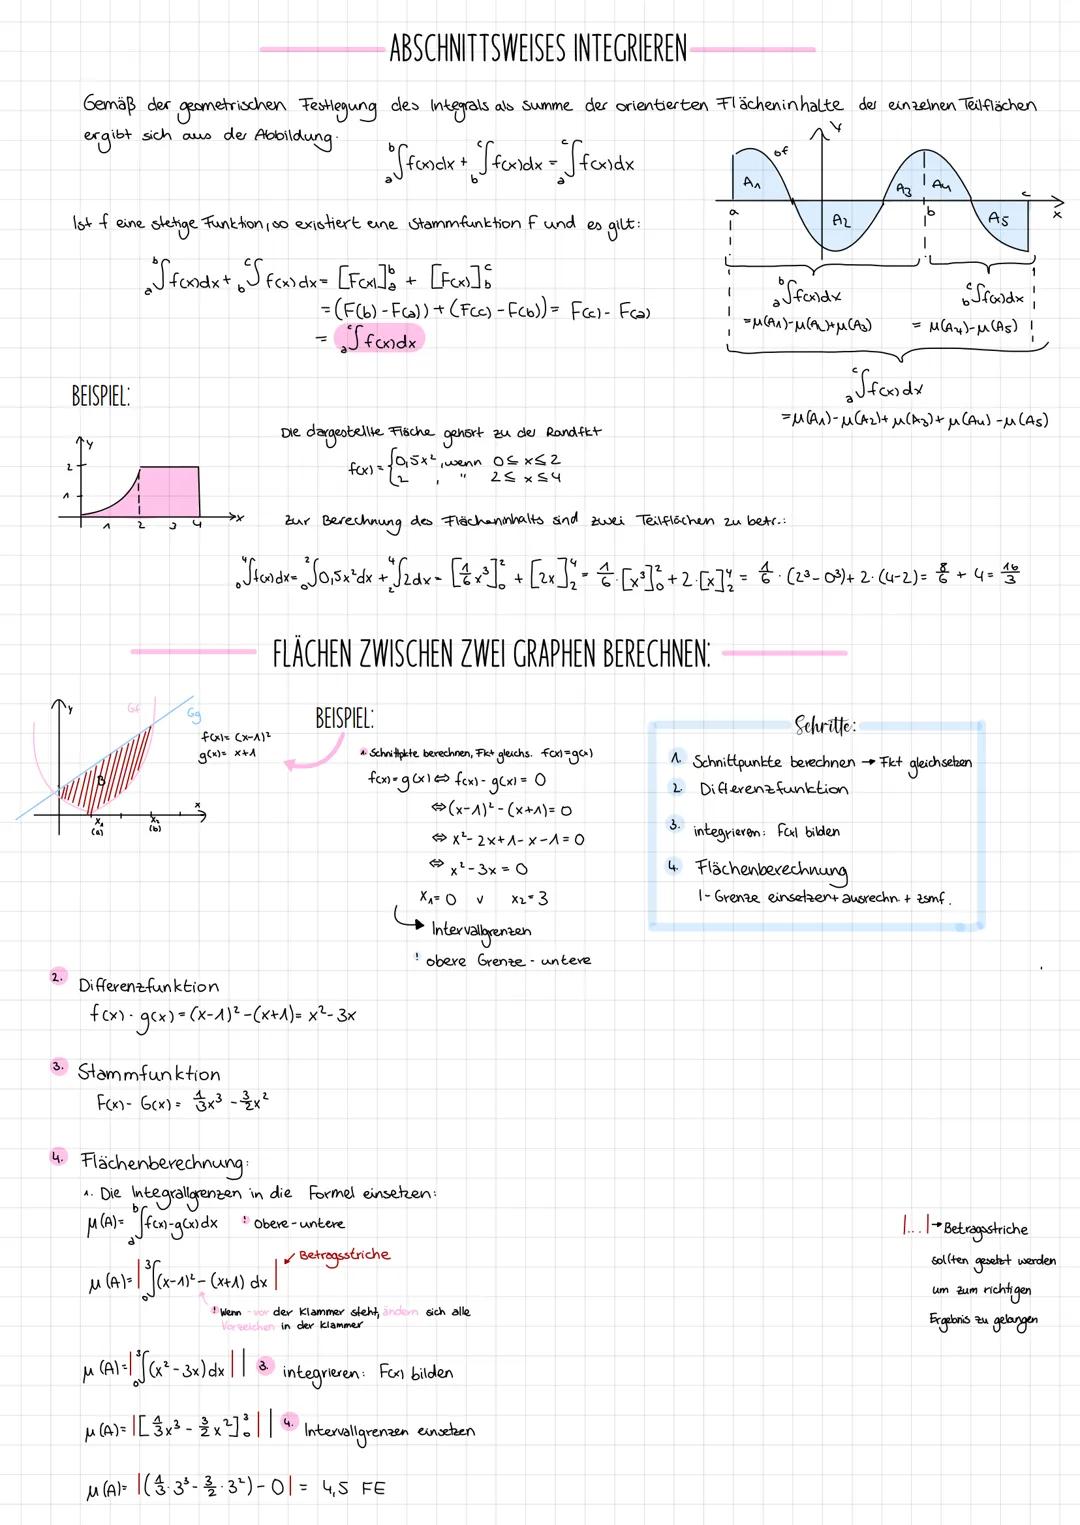 ABSCHNITTSWEISES INTEGRIEREN
Gemäß der geometrischen Festlegung des Integrals als Summe der orientierten Flächeninhalte der einzelnen Teilflächen
ergibt sich aus der Abbildung.
ₐ∫ᵇ f(x)dx + b∫ᶜ f(x)dx = ₐ∫ᶜ f(x)dx
y
Gf
A₁
A₂
A₃
A₄
A₅
a
b
c
x
Ist f eine stetige Funktion, so existiert eine Stammfunktion F und es gilt:
ₐ∫ᵇ f(x)dx + b∫ᶜ f(x)dx = [F(x)]ₐᵇ + [F(x)]bᶜ
= (F(b) - F(a)) + (F(c) - F(b)) = F(c) - F(a)
= ₐ∫ᶜ f(x)dx
ₐ∫ᵇ f(x)dx
= μ(A₁)-μ(A₂)+μ(A₃)
b∫ᶜ f(x)dx
= μ(A₄)-μ(A₅)
ₐ∫ᶜ f(x)dx
= μ(A₁)-μ(A₂)+μ(A₃)+μ(A₄)-μ(A₅)
BEISPIEL:
y
2
1
1 2 3 4 x
Die dargestellte Fläche gehört zu der Randfkt
f(x) = {0,5x², wenn 0 ≤ x ≤ 2
2 , " 2 ≤ x ≤ 4
Zur Berechnung des Flächeninhalts sind zwei Teilflächen zu betr.:
₀∫⁴ f(x)dx = ₀∫² 0,5x²dx + ₂∫⁴ 2dx = [1/6 x³]₀² + [2x]₂⁴ = 1/6 · [x³]₀² + 2·[x]₂⁴ = 1/6 · (2³-0³) + 2·(4-2) = 8/6 + 4 = 16/3
FLÄCHEN ZWISCHEN ZWEI GRAPHEN BERECHNEN:
y
Gf
Gg
B
x₁
(a)
x₂
(b)
x
f(x) = (x-1)²
g(x) = x+1
BEISPIEL:
1. Schnittpkte berechnen, Fkt gleichs. f(x)=g(x)
f(x) = g(x) ⇔ f(x) - g(x) = 0
⇔ (x-1)² - (x+1) = 0
⇔ x² - 2x + 1 - x - 1 = 0
⇔ x² - 3x = 0
x₁ = 0 v x₂ = 3
Intervallgrenzen
! obere Grenze - untere
Schritte:
1. Schnittpunkte berechnen → Fkt gleichsetzen
2. Differenzfunktion
3. integrieren: F(x) bilden
4. Flächenberechnung
I-Grenze einsetzen + ausrechn. + zsmf.
2. Differenzfunktion
f(x) - g(x) = (x-1)² - (x+1) = x² - 3x
3. Stammfunktion
F(x) - G(x) = 1/3 x³ - 3/2 x²
4. Flächenberechnung:
1. Die Integrallgrenzen in die Formel einsetzen:
μ(A) = ₐ∫ᵇ f(x)-g(x)dx ! obere-untere
μ(A) = |₀∫³ (x-1)² - (x+1) dx| Betragsstriche
! Wenn - vor der Klammer steht, ändern sich alle
Vorzeichen in der Klammer
|...| → Betragsstriche
sollten gesetzt werden
um zum richtigen
Ergebnis zu gelangen
μ(A) = |₀∫³ (x² - 3x)dx| | 3. integrieren: F(x) bilden
μ(A) = |[1/3 x³ - 3/2 x²]₀³| | 4. Intervallgrenzen einsetzen
μ(A) = |(1/3 · 3³ - 3/2 · 3²) - 0| = 4,5 FE